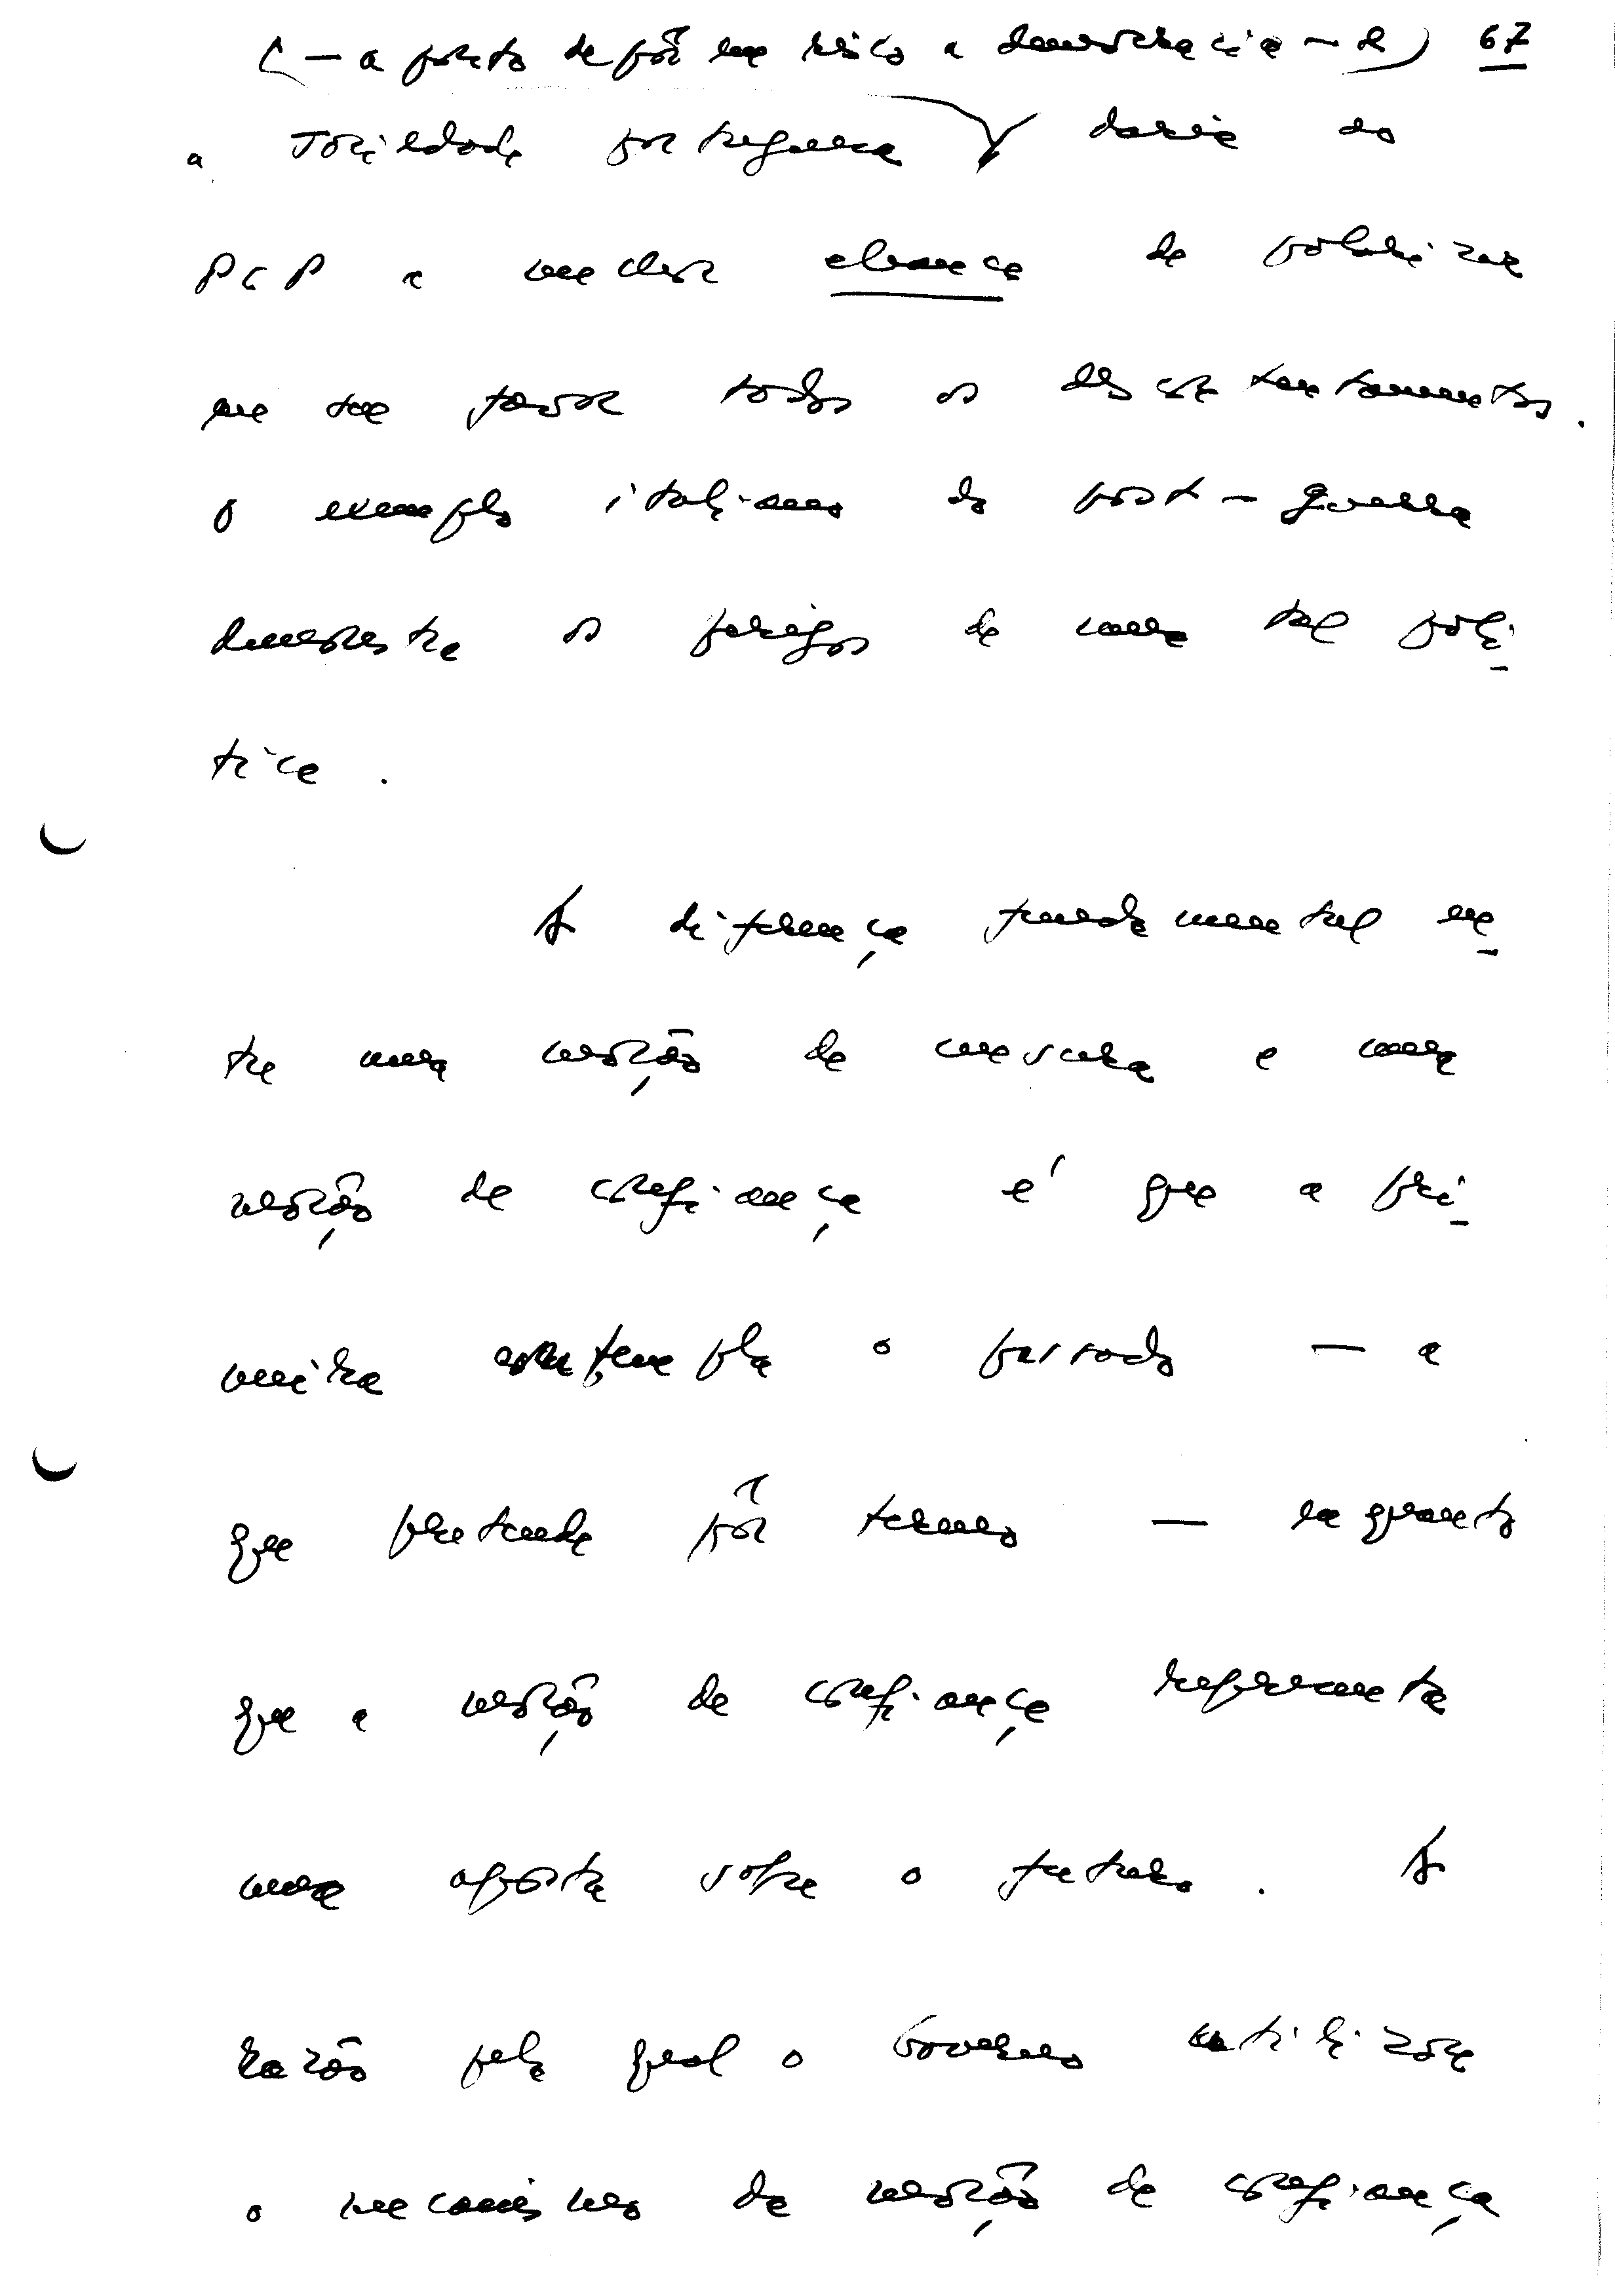 (— a ponto de pôr em risco a democracia —) 67
a sociedade portuguesa daria ao
PCP a melhor chance de polarizar
em seu favor todos os descontentamentos.
O exemplo italiano do post-guerra
demonstra os perigos de uma tal polí-
tica.
A diferença fundamental en-
tre uma moção de censura e uma
moção de confiança é que a pri-
meira contempla o passado — a
que pretende pôr termo — enquanto
que a moção de confiança representa
uma aposta sobre o futuro. A
razão pela qual o Governo utilizou
o mecanismo da moção de confiança